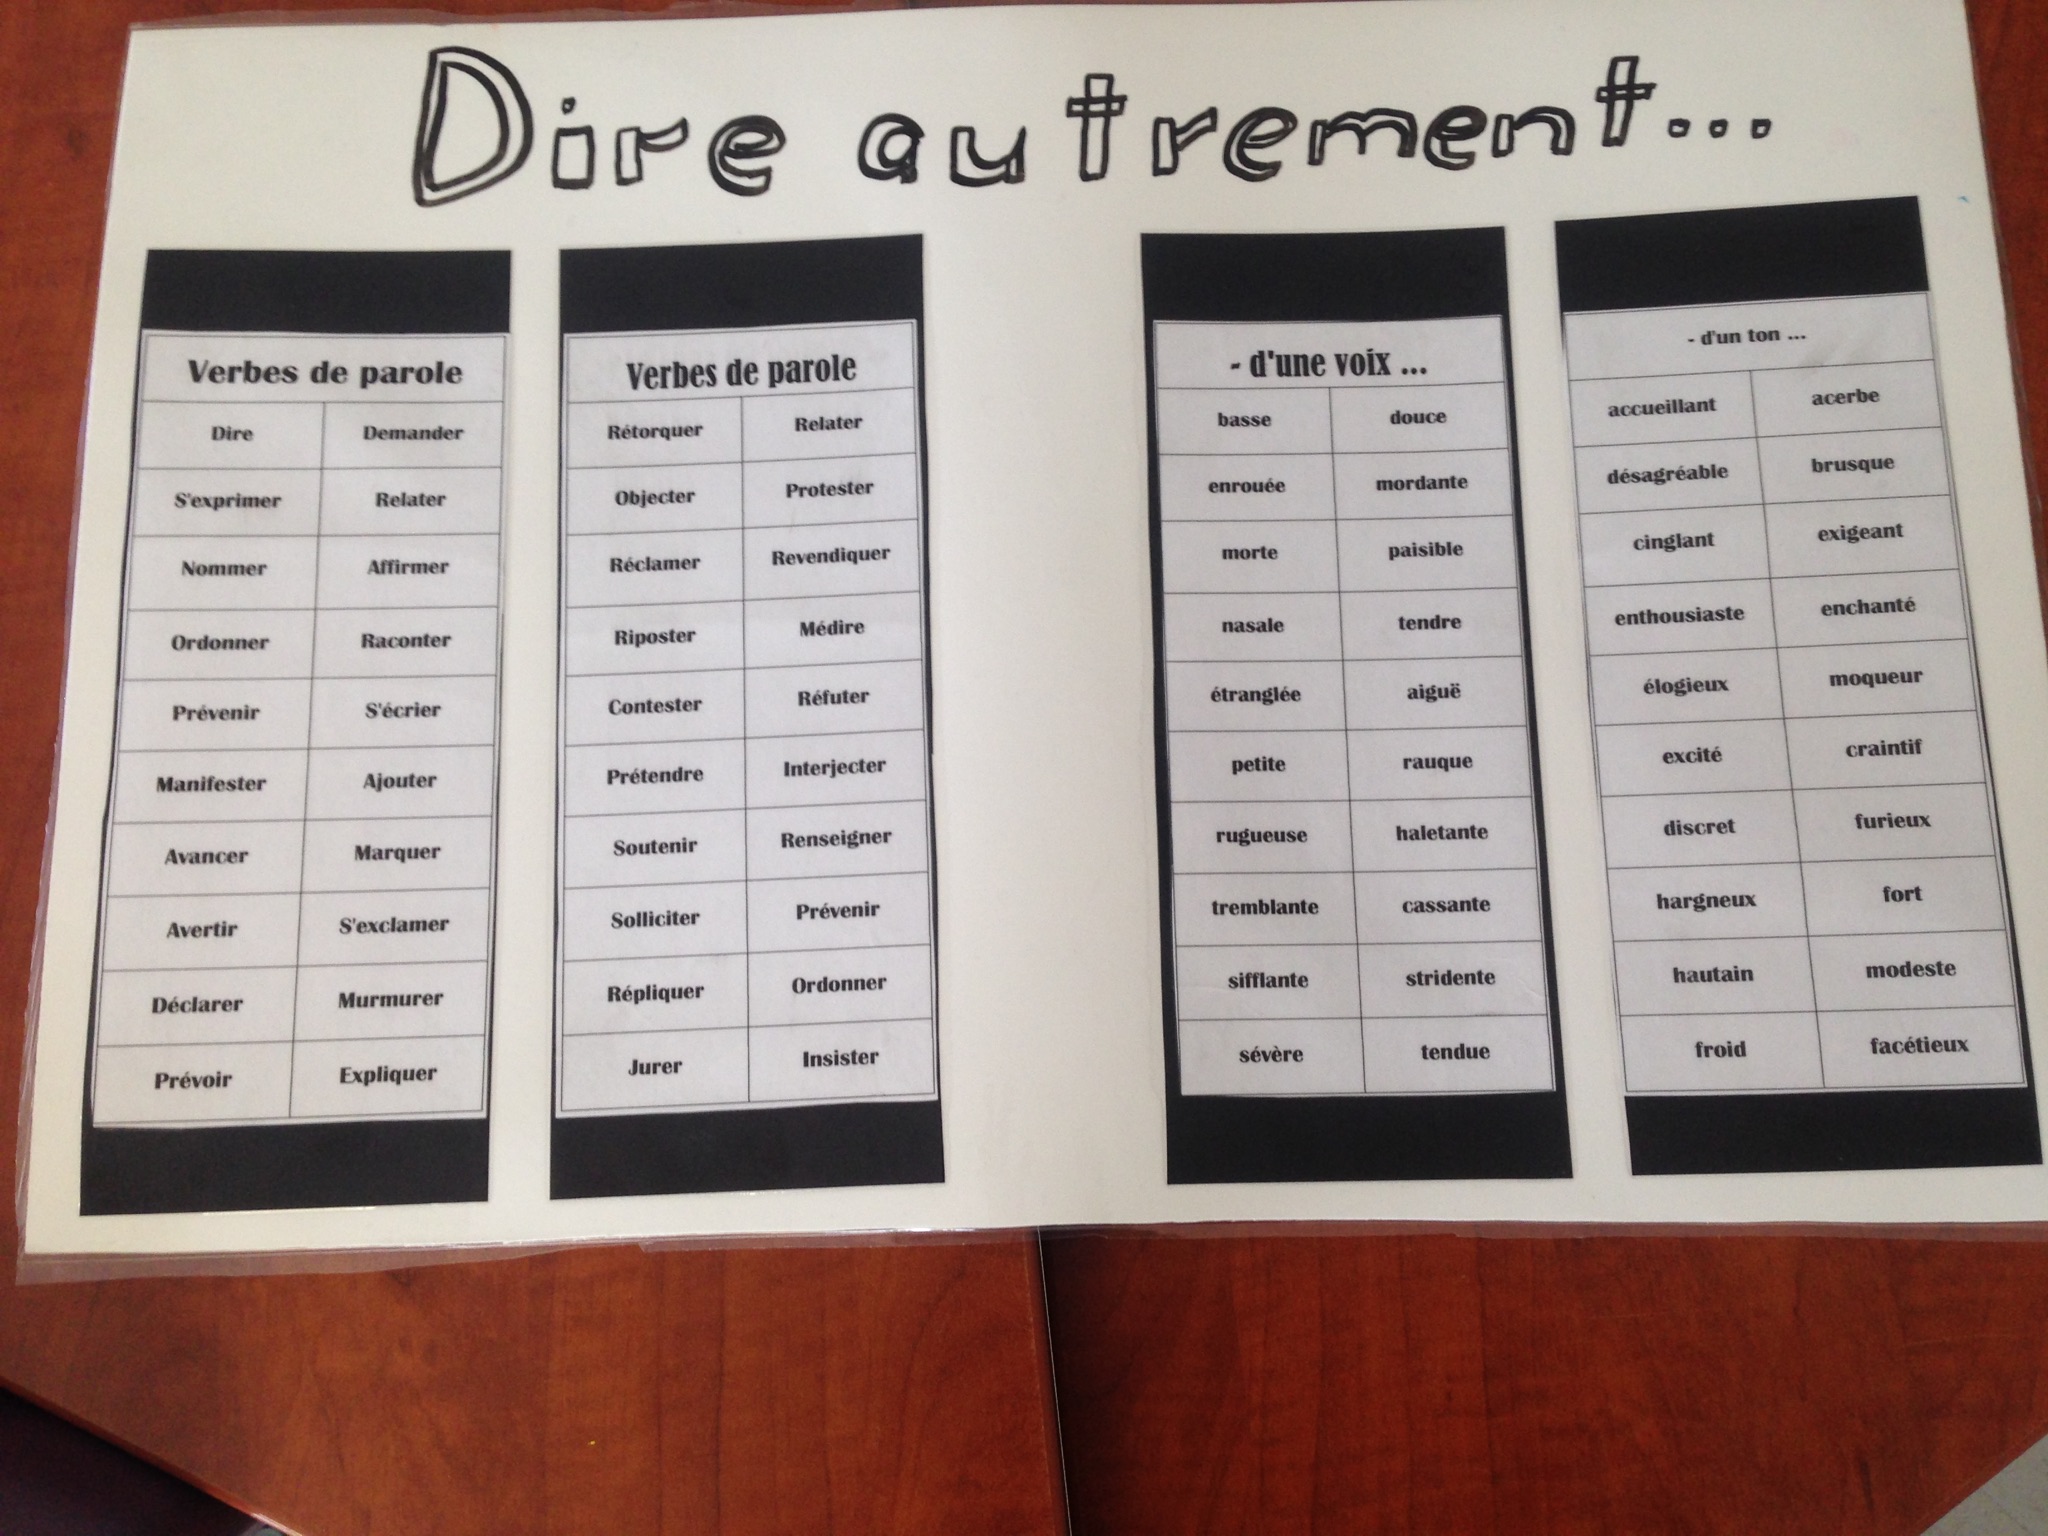 Dire autrement...
Verbes de parole
Dire Demander
S'exprimer Relater
Nommer Affirmer
Ordonner Raconter
Prévenir S'écrier
Manifester Ajouter
Avancer Marquer
Avertir S'exclamer
Déclarer Murmurer
Prévoir Expliquer
Verbes de parole
Rétorquer Relater
Objecter Protester
Réclamer Revendiquer
Riposter Médire
Contester Réfuter
Prétendre Interjecter
Soutenir Renseigner
Solliciter Prévenir
Répliquer Ordonner
Jurer Insister
- d'une voix ...
basse douce
enrouée mordante
morte paisible
nasale tendre
étranglée aiguë
petite rauque
rugueuse haletante
tremblante cassante
sifflante stridente
sévère tendue
- d'un ton ...
accueillant acerbe
désagréable brusque
cinglant exigeant
enthousiaste enchanté
élogieux moqueur
excité craintif
discret furieux
hargneux fort
hautain modeste
froid facétieux